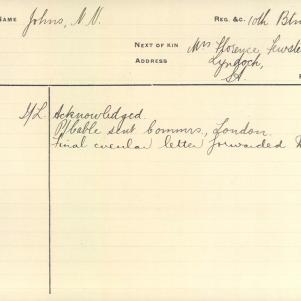 NAME Johns, N.N. REG. &C. 10th Btn
NEXT OF KIN Mrs Florence
ADDRESS Lyndoch,
SA
Acknowledged.
cable sent Commrs., London.
Final circular letter forwarded